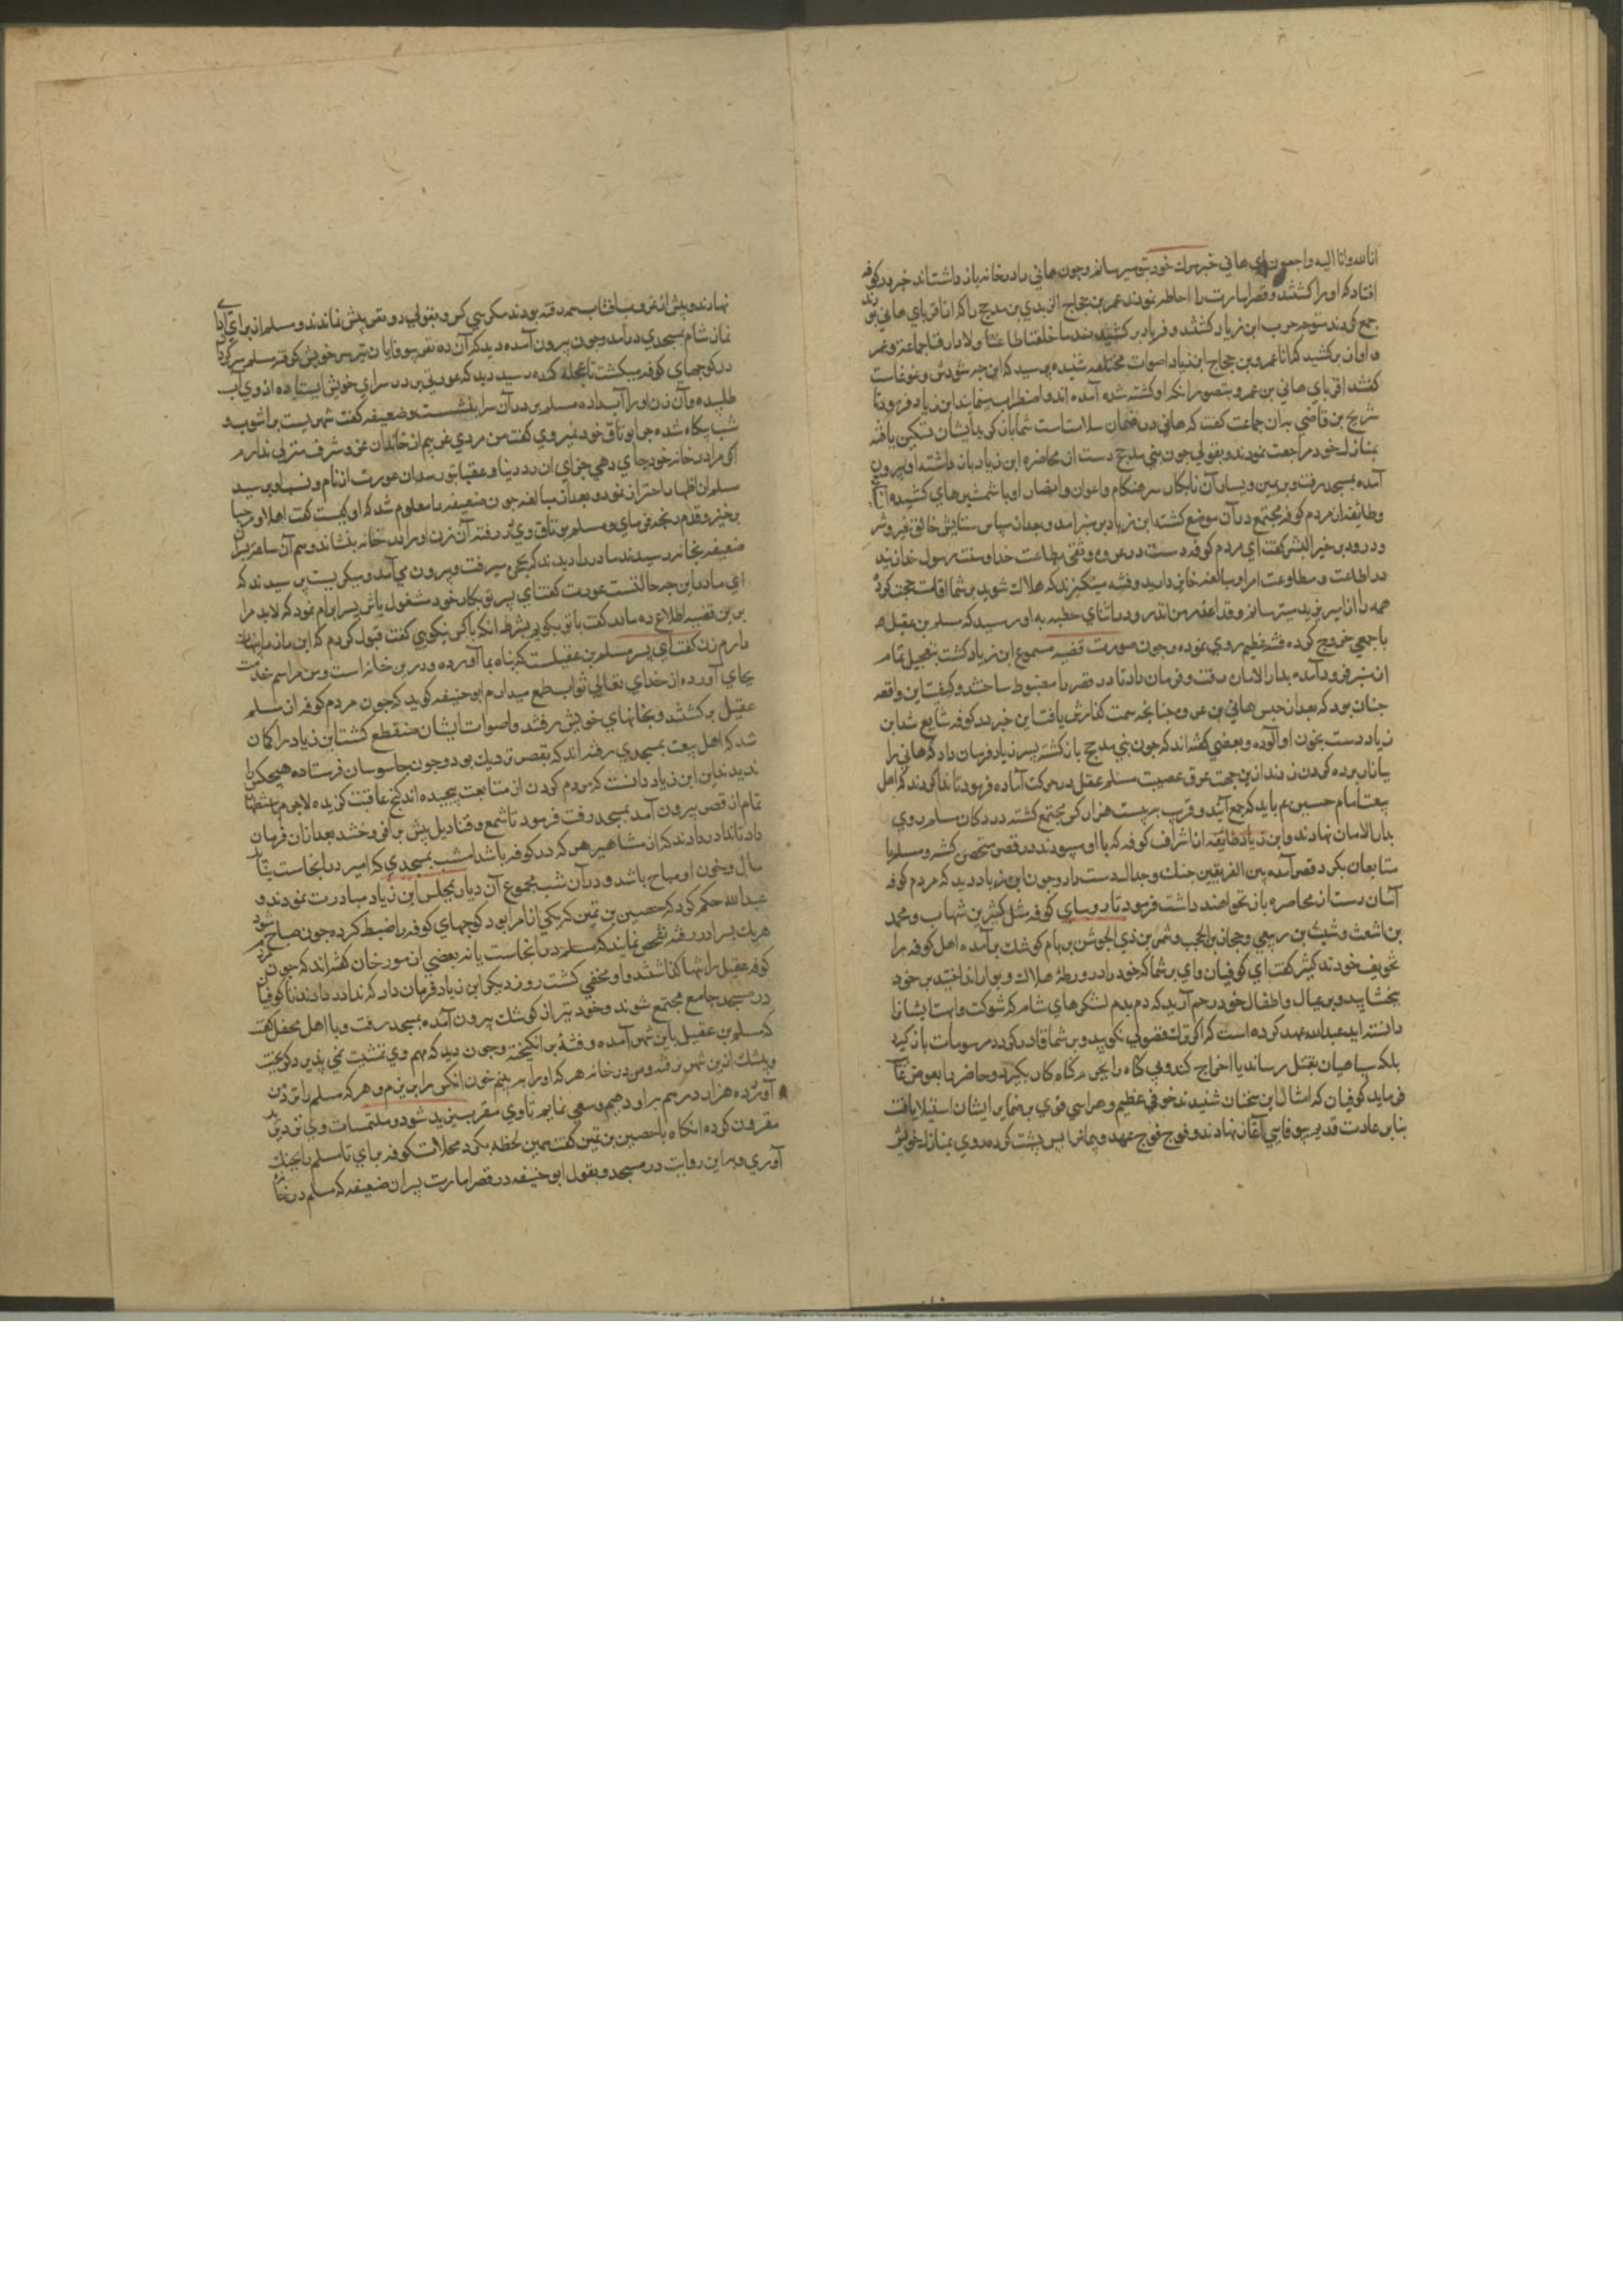 انا لله وانا الیه راجعون ای هانی خبر مرك خود بتو میرسانم و چون هانی را در خانه باز داشتند خبر در کوفه
افتاد که او را کشتند و قصر امارت را احاطه نمودند عمر بن حجاج الزبیدی بن مدحج را که از اقربای هانی بود
جمع کردند متوجه حرب ابن زیاد کشتند و فریاد بر کشیدند ما خلعنا طاعتا ولا فارقنا جماعة و عمر
و امان بر کشید که انا عمرو بن حجاج ابن زیاد اصوات مختلفه شنیده پرسید که این چه شورش و غوغاست
کفتند اقربای هانی بن عمرو بتصور انکه او کشته شده آمده اند و اضطراب مینمایند ابن زیاد فرمود تا
شریح بن قاضی بدان جماعت کفت که هانی در ضمان سلامتست شما باز کردید ایشان تسکین یافته
بمنازل خود مراجعت نمودند و بقولی چون بنی مدحج دست از محاصره ابن زیاد باز داشتند او بیرون
آمده بمسجد رفت و بر یمین و یسار آن نابکار سرهنکام و اعوان و انصار او با شمشیرهای کشیده
و طایفه از مردم کوفه مجتمع در آن موضع کشته ابن زیاد بر منبر آمد و بعد از سپاس ستایش خالق خیر و شر
و درود بر خیر البشر کفت ای مردم کوفه دست در عروه وثقی مطاعت خدا و سنت رسول خدا زنید
در اطاعت و مطاوعت امرا و مبالغه فانی دارید و فتنه میکیزید که هلاك شوید بر شما اقامت حجت کردم
همه را انا امیر یزید میترسانم و قد اعذر من انذر و در اثنای خطبه به او رسید که مسلم بن عقیل
با جمعی خروج کرده فتنه عظیم روی نموده و چون صورت قضیه مسموع ابن زیاد کشت بتعجیل تمام
از منبر فرود آمده بدار الامارت رفت و فرمان داد تا در قصر را مضبوط ساختند و کیفیت این واقعه
چنان بود که بعد از حبس هانی بن عروه چنانچه سمت کذارش یافت این خبر در کوفه شایع شد ابن
زیاد دست بخون او آلوده و بعضی کفته اند که چون بنی مدحج باز کشتند پسر زیاد فرمان داد که هانی را
ببازار برده کردن زدند از این جهت عرق عصبیت مسلم عقیل در حرکت آماده فرمود تا ندا کردند که اهل
بیعت امام حسین ع باید که جمع آیند و قرب بیست هزار کس مجتمع کشته در رکاب مسلم روی
بدار الامارت نهادند و ابن زیاد طایفه از اشراف کوفه که با او بودند در قصر متحصن کشته و مسلم با
متابعان بکرد قصر آمده بین الفریقین جنك و جدال دست داد و چون ابن زیاد دید که مردم کوفه
آسان دست از محاصره باز نخواهند داشت فرمود تا روسای کوفه مثل کثیر بن شهاب و محمد
بن اشعث و شبث بن ربعی و حجار بن الجب و شمر بن ذی الجوشن بر بام کوشك بر آمده اهل کوفه را
تخویف نمودند کثیر کفت ای کوفیان وای بر شما که خود را در ورطه هلاك و بوار انداختید بر خود
ببخشایید و بر عیال و اطفال خود رحم آرید که دم بدم لشکرهای شام که شوکت و ابهت ایشانرا
دانسته اید عبدالله عهد کرده است که اکر ترك فضولی نکویید و بر شما قادر کردد مرسومات باز کیرد
بلکه سپاهیان بقتل رساند یا اخراج کند و بی کناه را بجرم کناه کار بکیرد و حاضر را بعوض غایب
فرماید کوفیان که امثال این سخنان شنیدند خوفی عظیم و هراسی قوی بر ضمایر ایشان استیلا یافت
بنابر عادت قدیم بیوفایی آغاز نهادند و فوج فوج عهد و پیمانرا پس پشت کرده روی بمنازل خویش
نهادند و پیش از غروب افتاب همه رفته بودند مکر سی کس و بقولی دو نفر پیش نماندند و مسلم از برای ادای
نماز شام بمسجدی در آمد و چون بیرون آمده دید که آن ده نفر بیوفایان نیز سر خویش کرفته مسلم سرکردان
در کوچهای کوفه میکشت تا بمحله کنده رسید دید که عورتی بر در سرای خویش ایستاده از وی آب
طلبیده و آن زن او را آب داده مسلم بر در آن سرا بنشست و ضعیفه کفت شهریست پر آشوب و
شب بیکاه شده چرا بوثاق خود نمیروی کفت من مردی غریبم از خاندان عز و شرف منزلی ندارم
اکر مرا در خانه خود جای دهی جزای آن در دنیا و عقبا بتو رسد آن عورت از نام و نسب او پرسید
مسلم از اظهار احتراز نمود و بعد از مبالغه چون ضعیفه را معلوم شد که او کیست کفت اهلا و مرحبا
برخیز و قدم رنجه فرمای و مسلم بوثاق وی در رفته آن زن او را در خانه بنشاند و هم آن ساعت پسر آن
ضعیفه بخانه رسید مادر را دید که بحجره میرفت و بیرون می آمد و میکریست پرسید که
ای مادر این چه حالتست عورت کفت ای پسر تو بکار خود مشغول باش پسر ابرام نمود که لابد مرا
بر این قضیه اطلاع ده مادر کفت با تو بکویم بشرط انکه با کس نکویی کفت قبول کردم که این راز را پنهان
دارم زن کفت ای پسر مسلم بن عقیلست که پناه بما آورده و در این خانه است و من مراسم خدمت
بجای آورده از خدای تعالی ثواب طمع میدارم ابو حنیفه کوید که چون مردم کوفه از مسلم
عقیل بر کشتند و بخانهای خویش رفتند و اصوات ایشان منقطع کشت ابن زیاد را کمان
شد که اهل بیعت بمسجدی رفته اند که بقصر نزدیك بود و چون جاسوسان فرستاده هیچکس را
ندیدند ابن زیاد دانست که مردم کردن از متابعت پیچیده اند کنج عافیت کزیده لاجرم باستظهار
تمام از قصر بیرون آمد بمسجد رفت فرمود تا شمع و قنادیل پیش بر افروختند بعد از آن فرمان
داد تا ندا در دادند که از مشاهیر هر که در کوفه باشد امشب بمسجدی که امیر در انجاست نیاید
مال و خون او مباح باشد و در آن شب مجموع آن دیار بمجلس ابن زیاد مبادرت نمودند و
عبدالله حکم کرد که حصین بن نمیر که یکی از امرا بود کوچهای کوفه را ضبط کرده چون صباح شود
هر یك سرا در رفته تفحص نمایند که مسلم در انجاست یا نه بعضی از مورخان کفته اند که چون مردم
کوفه عقیل را تنها کذاشتند و او مخفی کشت روز دیکر ابن زیاد فرمان داد که ندا در دادند تا کوفیان
در مسجد جامع مجتمع شوند و خود نیز از کوشك بیرون آمده بمسجد رفت و با اهل محفل کفت
که مسلم بن عقیل باین شهر آمده و فتنه بر انکیخته و چون دید که مهم وی تمشیت نمی پذیرد کریخت
و بیشك از این شهر نرفته و من در خانه هر که او را بینم خون انکس را بریزم و هر که مسلم را نزد من
آورد ده هزار درهم باو دهیم و سعی نمایم تا وی مقرب یزید شود و ملتمسات وی نزد یزید
مقرون کرده انکاه با حصین بن نمیر کفت همین لحظه بکرد محلات کوفه برای تا مسلم را بچنك
آوری و بر این روایت در مسجد و بقول ابو حنیفه در قصر امارت پسر آن ضعیفه که مسلم در خانه